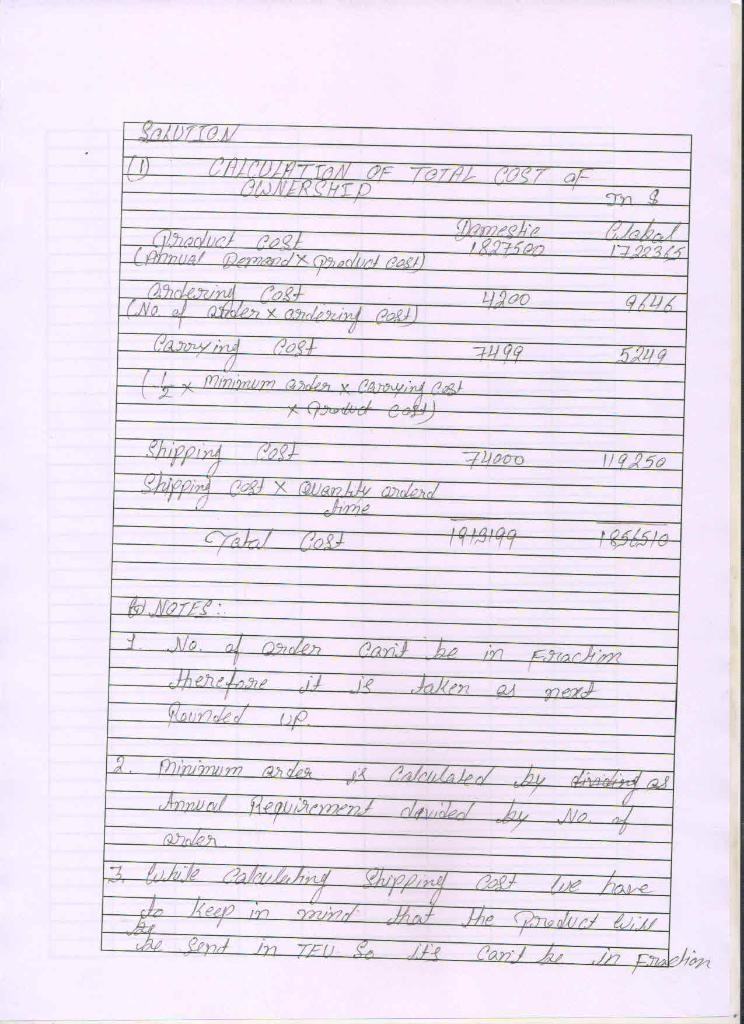 SOLUTION
(1) CALCULATION OF TOTAL COST OF
OWNERSHIP
In $
Domestic Global
Product cost 1827500 1722365
(Annual Demand x Product cost)
Ordering Cost 4200 9646
(No. of order x ordering cost)
Carrying Cost 7499 5249
(1/2 x Minimum order x Carrying Cost
x Product cost)
Shipping Cost 74000 119250
Shipping cost x Quantity orderd
time
Total Cost 1913199 1856510
NOTES:
1. No. of order can't be in Fraction
therefore it is taken as next
Rounded up.
2. Minimum order is calculated by dividing as
Annual Requirement devided by No. of
order.
3. While calculating Shipping Cost we have
to keep in mind that the Product will
be sent in TEU So it's can't be in Fraction